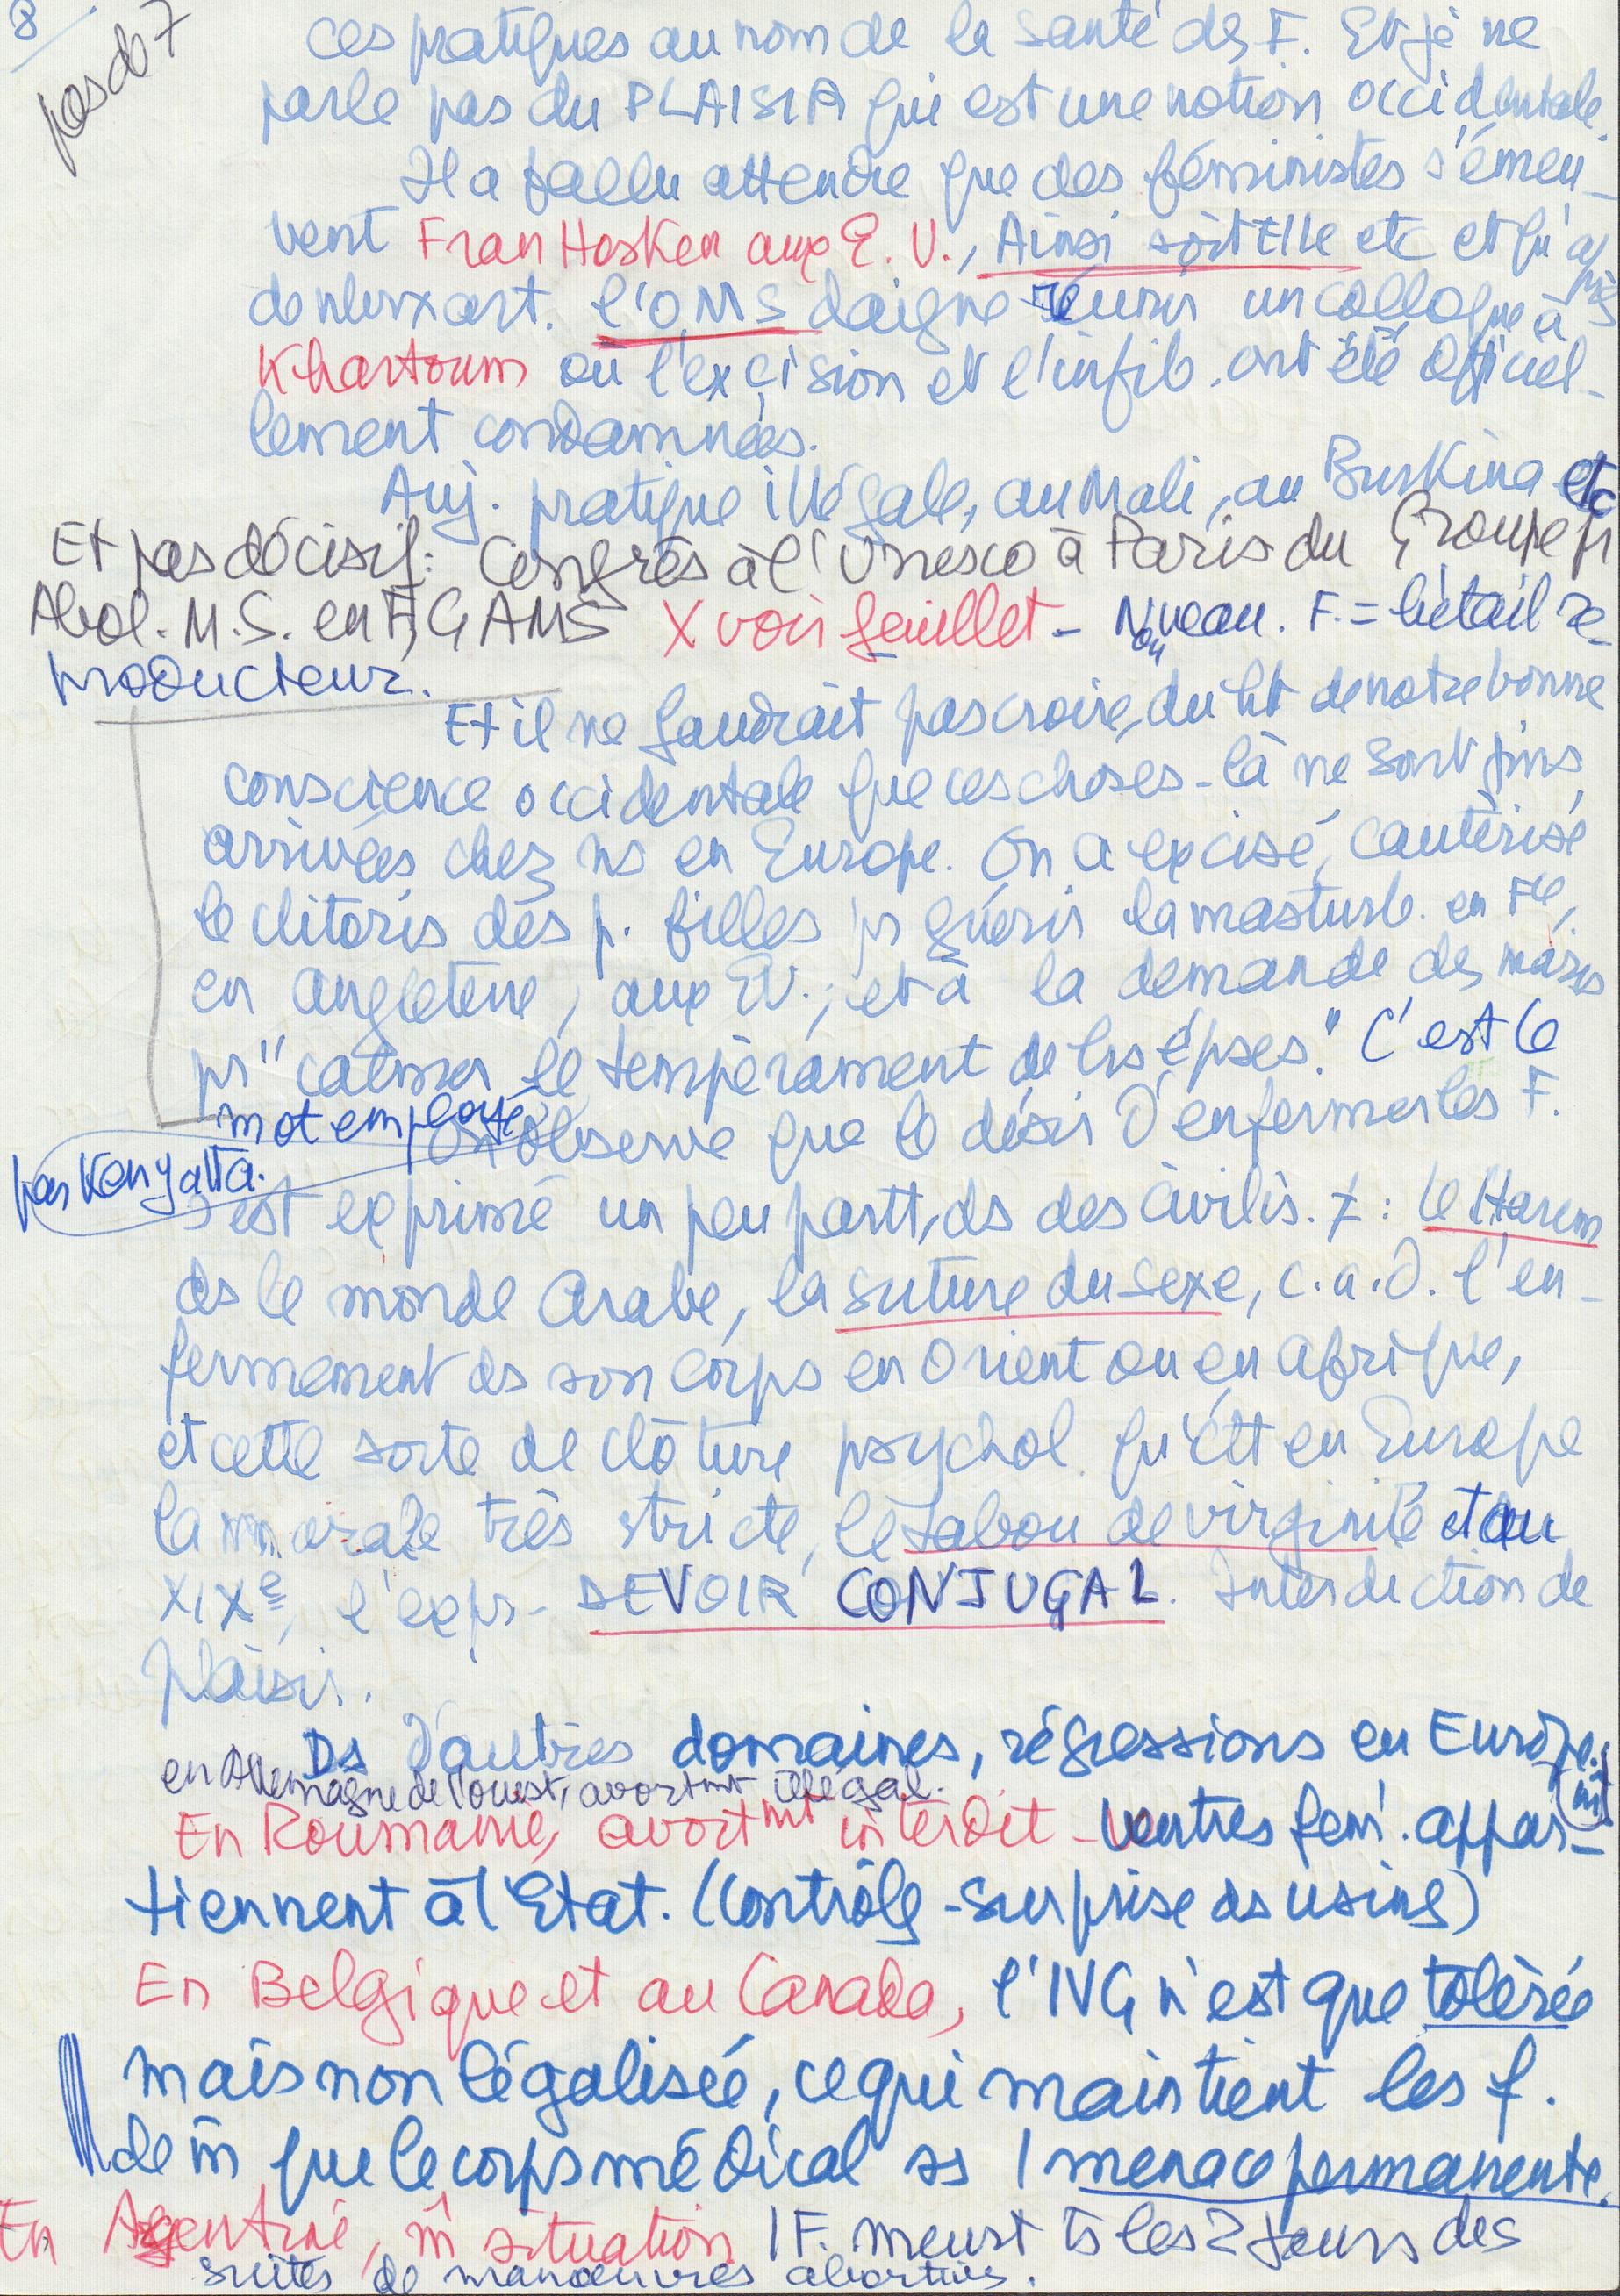 8
pas de 7
ces pratiques au nom de la santé des F. Et je ne
parle pas du PLAISIR qui est une notion occidentale.
Il a fallu attendre que des féministes s'émeu-
vent Fran Hosken aux E. U., Ainsi soit Elle etc et qu'après
de nbrx art. l'OMS daigne réunir un colloque à
Khartoum où l'excision et l'infib. ont été officiel-
lement condamnées.
Auj. pratique illégale, au Mali, au Burkina etc
Et pas décisif: Congrès à l'Unesco à Paris du Groupe pr
Abol. M.S. en F, GAMS X voir feuillet - Nouveau. F. = bétail re-
producteur.
Et il ne faudrait pas croire, du ht de notre bonne
conscience occidentale que ces choses-là ne sont pas
arrivées chez ns en Europe. On a excisé, cautérisé
le clitoris des p. filles pr guérir la masturb. en Fce,
en Angleterre, aux EU.; et à la demande des maris
pr "calmer le tempérament de lrs épses." C'est le
mot employé
par Kenyatta.
On observe que le désir d'enfermer les F.
s'est exprimé un peu partt, ds des civilis. ≠ : le Harem
ds le monde Arabe, la suture du sexe, c.a.d. l'en-
fermement ds son corps en Orient ou en Afrique,
et cette sorte de clôture psychol. qu'ett en Europe
la morale très stricte, le tabou de virginité et au
XIXe, l'expr- DEVOIR CONJUGAL. Interdiction de
plaisir.
Ds d'autres domaines, régressions en Europe.
en Allemagne de l'ouest, avortmt illégal.
En Roumanie, avortmt interdit - ventres fém. appar-
tiennent à l'Etat. (Contrôle-surprise ds usines)
En Belgique et au Canada, l'IVG n'est que tolérée
mais non légalisée, ce qui maintient les f.
de m̂ que le corps médical ss 1 menace permanente.
En Argentine, m̂ situation 1 F. meurt ts les 2 jours des
suites de manoeuvres abortives.